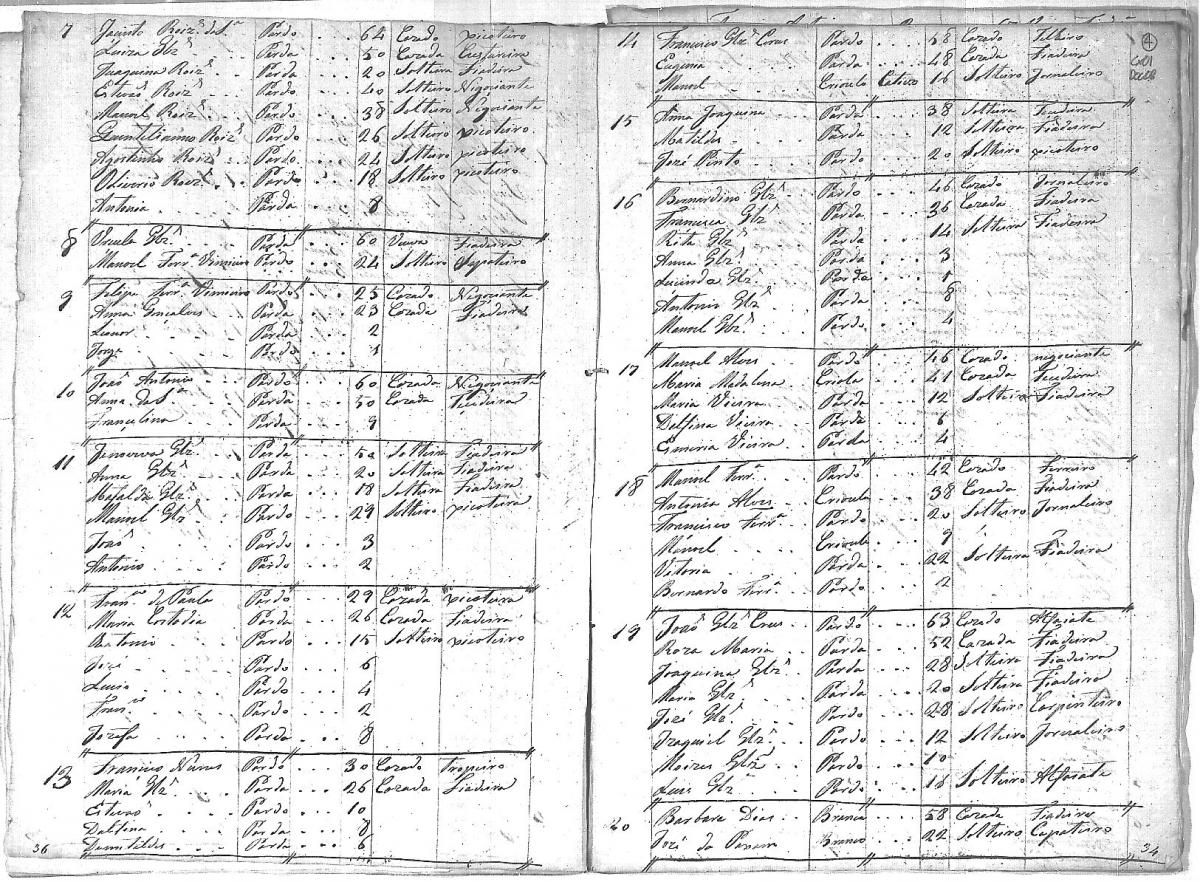 7 Jacinto Roiz' da S.ª Pardo 64 Cazado picoteiro
Luiza Glz' Parda 50 Cazada Custureira
Juaquina Roiz' Parda 20 Solteira Fiadeira
Estevão Roiz' Pardo 40 Solteiro Negociante
Manoel Roiz' Pardo 38 Solteiro Negociante
Quintilianno Roiz' Pardo 26 Solteiro picoteiro
Agostinho Roiz' Pardo 24 Solteiro picoteiro
Oliverio Roiz' Pardo 18 Solteiro picoteiro
Antonia Parda 8
8 Ursula Glz' Parda 60 Viuva Fiadeira
Manoel Ferr.ª Pardo 24 Solteiro Sapateiro
9 Felipe Ferr.ª Pardo 25 Cazado Negociante
Anna Goncalves Parda 23 Cazada Fiadeira
Leonor Parda 2
Jorge Pardo 1
10 João Antonio Pardo 60 Cazado Negociante
Anna da S.ª Parda 50 Cazada Teceideira
Francelina Parda 9
11 Glz' Parda 50 Solteira Fiadeira
Anna Glz' Parda 20 Solteira Fiadeira
Mafalda Glz' Parda 18 Solteira Fiadeira
Manoel Glz' Pardo 29 Solteiro picoteiro
João Pardo 3
Antonio Pardo 2
12 Fran.co de Paula Pardo 29 Cazado picoteiro
Maria Custodia Parda 26 Cazada Fiadeira
Antonio Pardo 15 Solteiro picoteiro
José Pardo 6
Lucio Pardo 4
Fran.co Pardo 2
Jozefa Parda 8
13 Francisco Nunes Pardo 30 Cazado Tropeiro
Maria Glz' Parda 26 Cazada Fiadeira
Estevão Pardo 10
Delfina Parda 8
Parda 6
36
14 Francisco Glz' Cruz Pardo 58 Cazado
Eugenia Parda 48 Cazada Fiadeira
Manoel Crioulo Cativo 16 Solteiro Jornaleiro
4
15 Anna Joaquina Parda 38 Solteira Fiadeira
Matildes Parda 12 Solteira Fiadeira
José Pinto Pardo 20 Solteiro picoteiro
16 Bernardino Glz' Pardo 46 Cazado Jornaleiro
Francisca Glz' Parda 36 Cazada Fiadeira
Rita Glz' Parda 14 Solteira Fiadeira
Anna Glz' Parda 3
Lucinda Glz' Parda 1
Antonio Glz' Pardo 8
Manoel Glz' Pardo 4
17 Manoel Alves Pardo 46 Cazado negociante
Maria Madalena Criola 41 Cazada Teceideira
Maria Vieira Parda 12 Solteira Fiadeira
Delfina Vieira Parda 6
Vieira Parda 4
18 Manoel Ferr.ª Pardo 42 Cazado Ferreiro
Antonia Alves Crioula 38 Cazada Fiadeira
Francisco Ferr.ª Pardo 20 Solteiro Jornaleiro
Manoel Crioulo 9
Vitoria Parda 22 Solteira Fiadeira
Bernardo Ferr.ª Pardo 2
19 João Glz' Cruz Pardo 63 Cazado Alfaiate
Roza Maria Parda 52 Cazada Fiadeira
Joaquina Glz' Parda 28 Solteira Fiadeira
Maria Glz' Parda 20 Solteira Fiadeira
José Glz' Pardo 28 Solteiro Carpinteiro
Izaquiel Glz' Pardo 12 Solteiro Jornaleiro
Moizes Glz' Pardo 10
Luis Glz' Pardo 16 Solteiro Alfaiate
20 Barbara Dias Branca 58 Cazada Fiadeira
José da Branco 22 Solteiro Capateiro
34